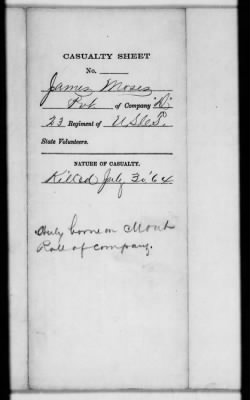 CASUALTY SHEET
No.
James Moses
Pvt of Company "D"
23 Regiment of U.S.C.T.
State Volunteers.
NATURE OF CASUALTY.
Killed July 30 '64
borne on
Roll of Company.